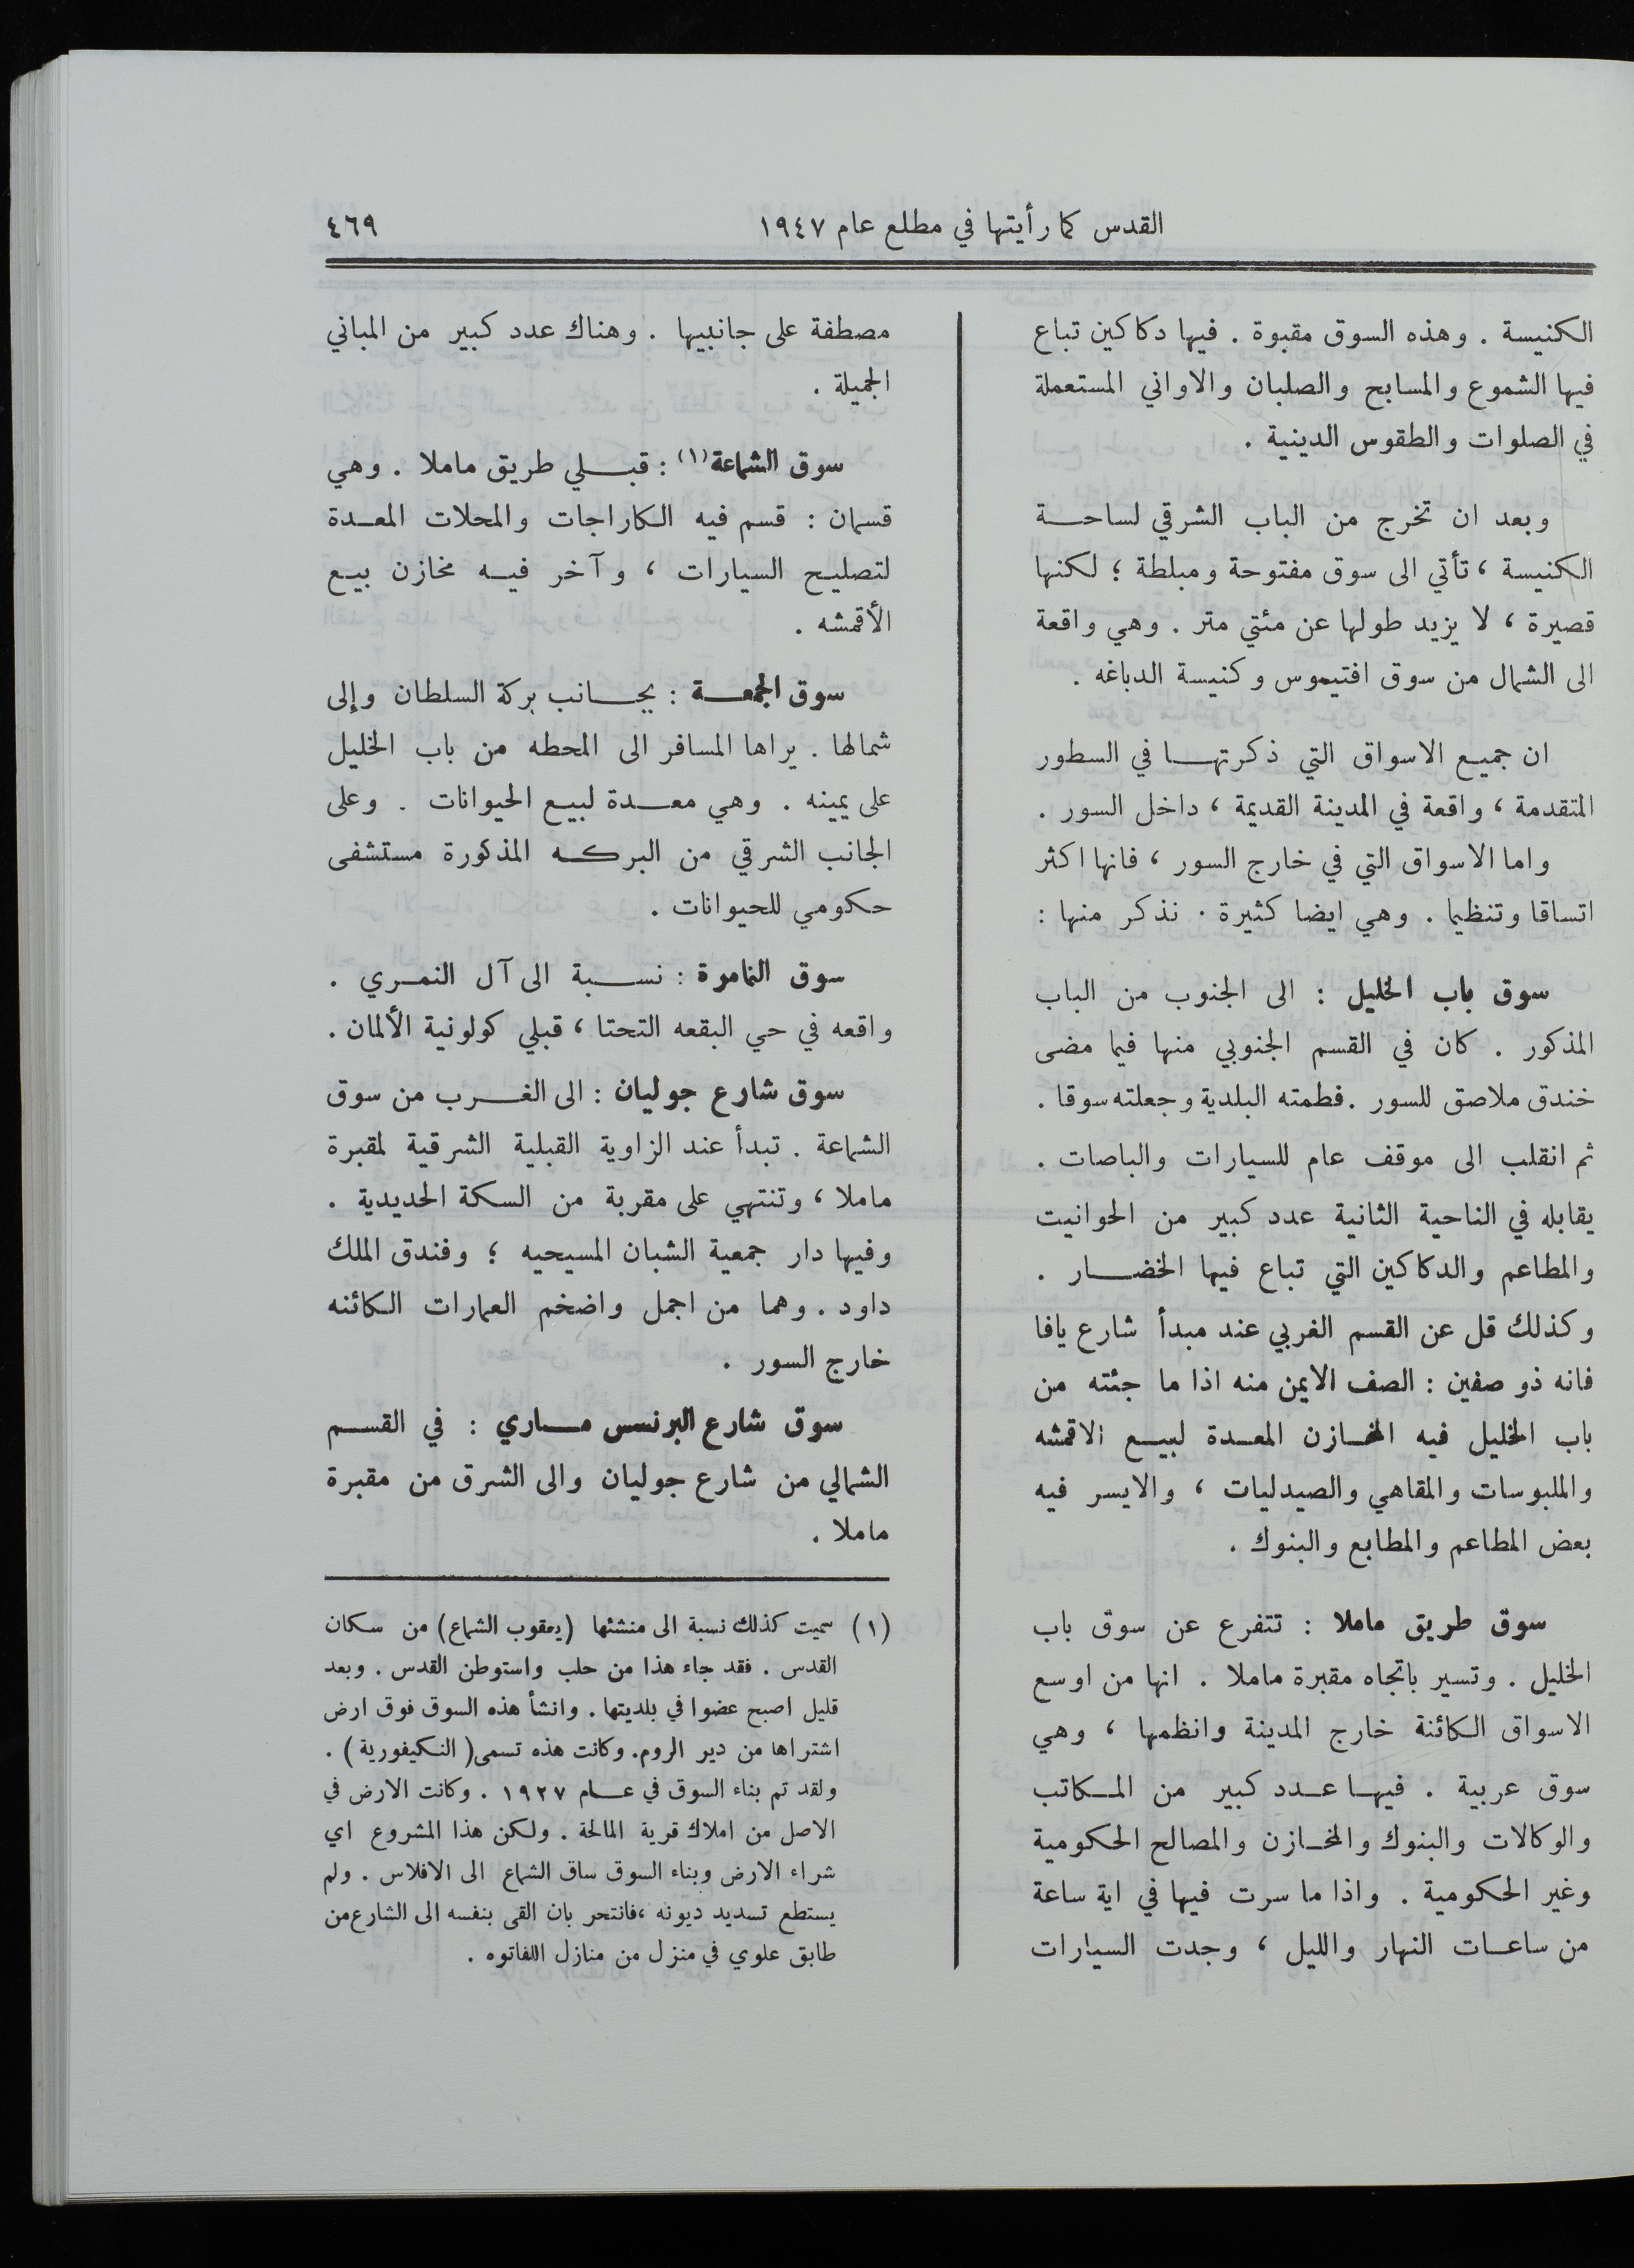 القدس كما رأيتها في مطلع عام ١٩٤٧
٤٦٩
الكنيسة . وهذه السوق مقبوة . فيها دكاكين تباع
فيها الشموع والمسابح والصلبان والاواني المستعملة
في الصلوات والطقوس الدينية .
وبعد ان تخرج من الباب الشرقي لساحة
الكنيسة ، تأتي الى سوق مفتوحة ومبلطة ؛ لكنها
قصيرة ، لا يزيد طولها عن مئتي متر . وهي واقعة
الى الشمال من سوق افتيموس وكنيسة الدباغه .
ان جميع الاسواق التي ذكرتها في السطور
المتقدمة ، واقعة في المدينة القديمة ، داخل السور .
واما الاسواق التي في خارج السور ، فانها اكثر
اتساقا وتنظيما . وهي ايضا كثيرة . نذكر منها :
سوق باب الخليل : الى الجنوب من الباب
المذكور . كان في القسم الجنوبي منها فيما مضى
خندق ملاصق للسور . فطمته البلدية وجعلته سوقا .
ثم انقلب الى موقف عام للسيارات والباصات .
يقابله في الناحية الثانية عدد كبير من الحوانيت
والمطاعم والدكاكين التي تباع فيها الخضار .
وكذلك قل عن القسم الغربي عند مبدأ شارع يافا
فانه ذو صفين : الصف الايمن منه اذا ما جئته من
باب الخليل فيه المخازن المعدة لبيع الاقمشه
والملبوسات والمقاهي والصيدليات ، والايسر فيه
بعض المطاعم والمطابع والبنوك .
سوق طريق ماملا : تتفرع عن سوق باب
الخليل . وتسير باتجاه مقبرة ماملا . انها من اوسع
الاسواق الكائنة خارج المدينة وانظمها ، وهي
سوق عربية . فيها عدد كبير من المكاتب
والوكالات والبنوك والمخازن والمصالح الحكومية
وغير الحكومية . واذا ما سرت فيها في اية ساعة
من ساعات النهار والليل ، وجدت السيارات
مصطفة على جانبيها . وهناك عدد كبير من المباني
الجميلة .
سوق الشماعة(١) : قبلي طريق ماملا . وهي
قسمان : قسم فيه الكاراجات والمحلات المعدة
لتصليح السيارات ، وآخر فيه مخازن بيع
الأقمشه .
سوق الجمعة : بجانب بركة السلطان وإلى
شمالها . يراها المسافر الى المحطه من باب الخليل
على يمينه . وهي معدة لبيع الحيوانات . وعلى
الجانب الشرقي من البركه المذكورة مستشفى
حكومي للحيوانات .
سوق النمامرة : نسبة الى آل النمري .
واقعه في حي البقعه التحتا ، قبلي كولونية الألمان .
سوق شارع جوليان : الى الغرب من سوق
الشماعة . تبدأ عند الزاوية القبلية الشرقية لمقبرة
ماملا ، وتنتهي على مقربة من السكة الحديدية .
وفيها دار جمعية الشبان المسيحيه ؛ وفندق الملك
داود . وهما من اجمل واضخم العمارات الكائنه
خارج السور .
سوق شارع البرنسس ماري : في القسم
الشمالي من شارع جوليان والى الشرق من مقبرة
ماملا .
(١) سميت كذلك نسبة الى منشئها (يعقوب الشماع) من سكان
القدس . فقد جاء هذا من حلب واستوطن القدس . وبعد
قليل اصبح عضوا في بلديتها . وانشأ هذه السوق فوق ارض
اشتراها من دير الروم. وكانت هذه تسمى (النكيفورية) .
ولقد تم بناء السوق في عام ١٩٢٧ . وكانت الارض في
الاصل من املاك قرية المالحة . ولكن هذا المشروع اي
شراء الارض وبناء السوق ساق الشماع الى الافلاس . ولم
يستطع تسديد ديونه ، فانتحر بان القى بنفسه الى الشارع من
طابق علوي في منزل من منازل اللفاتوه .